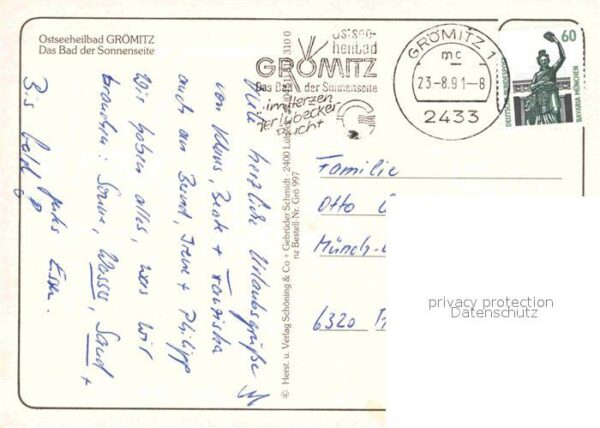 Ostseeheilbad GRÖMITZ
Das Bad der Sonnenseite
Viele herzliche Urlaubsgrüße
von Klaus, Beate + Franziska
auch an Bernd, Irene + Philipp
Wir haben alles, was wir
brauchen: Sonne, Wasser, Sand +
Bis bald
© Herst. u. Verlag Schöning & Co + Gebrüder Schmidt · 2400 Lübeck
nz Bestell-Nr. Grö 997
Ostsee-
heilbad
GRÖMITZ
Das Bad der Sonnenseite
im Herzen
der Lübecker
Bucht
GRÖMITZ 1
mc
23-8.91-8
2433
60
DEUTSCHE BUNDESPOST
BAVARIA MÜNCHEN
Familie
Otto
Münch-
6320
privacy protection
Datenschutz